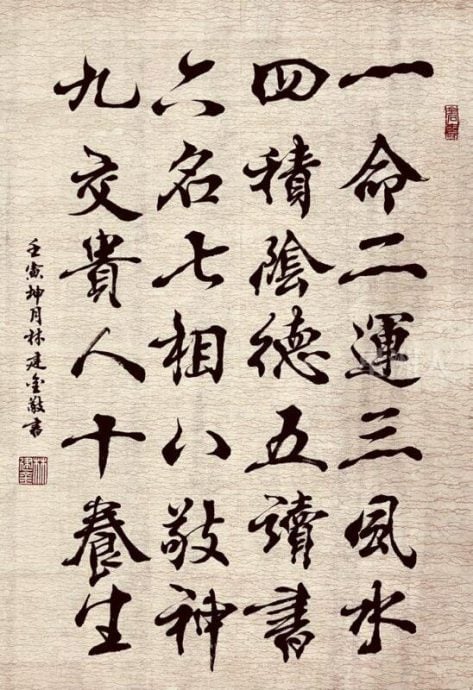 一命二運三風水
四積陰德五讀書
六名七相八敬神
九交貴人十養生
壬寅坤月林建金敬書